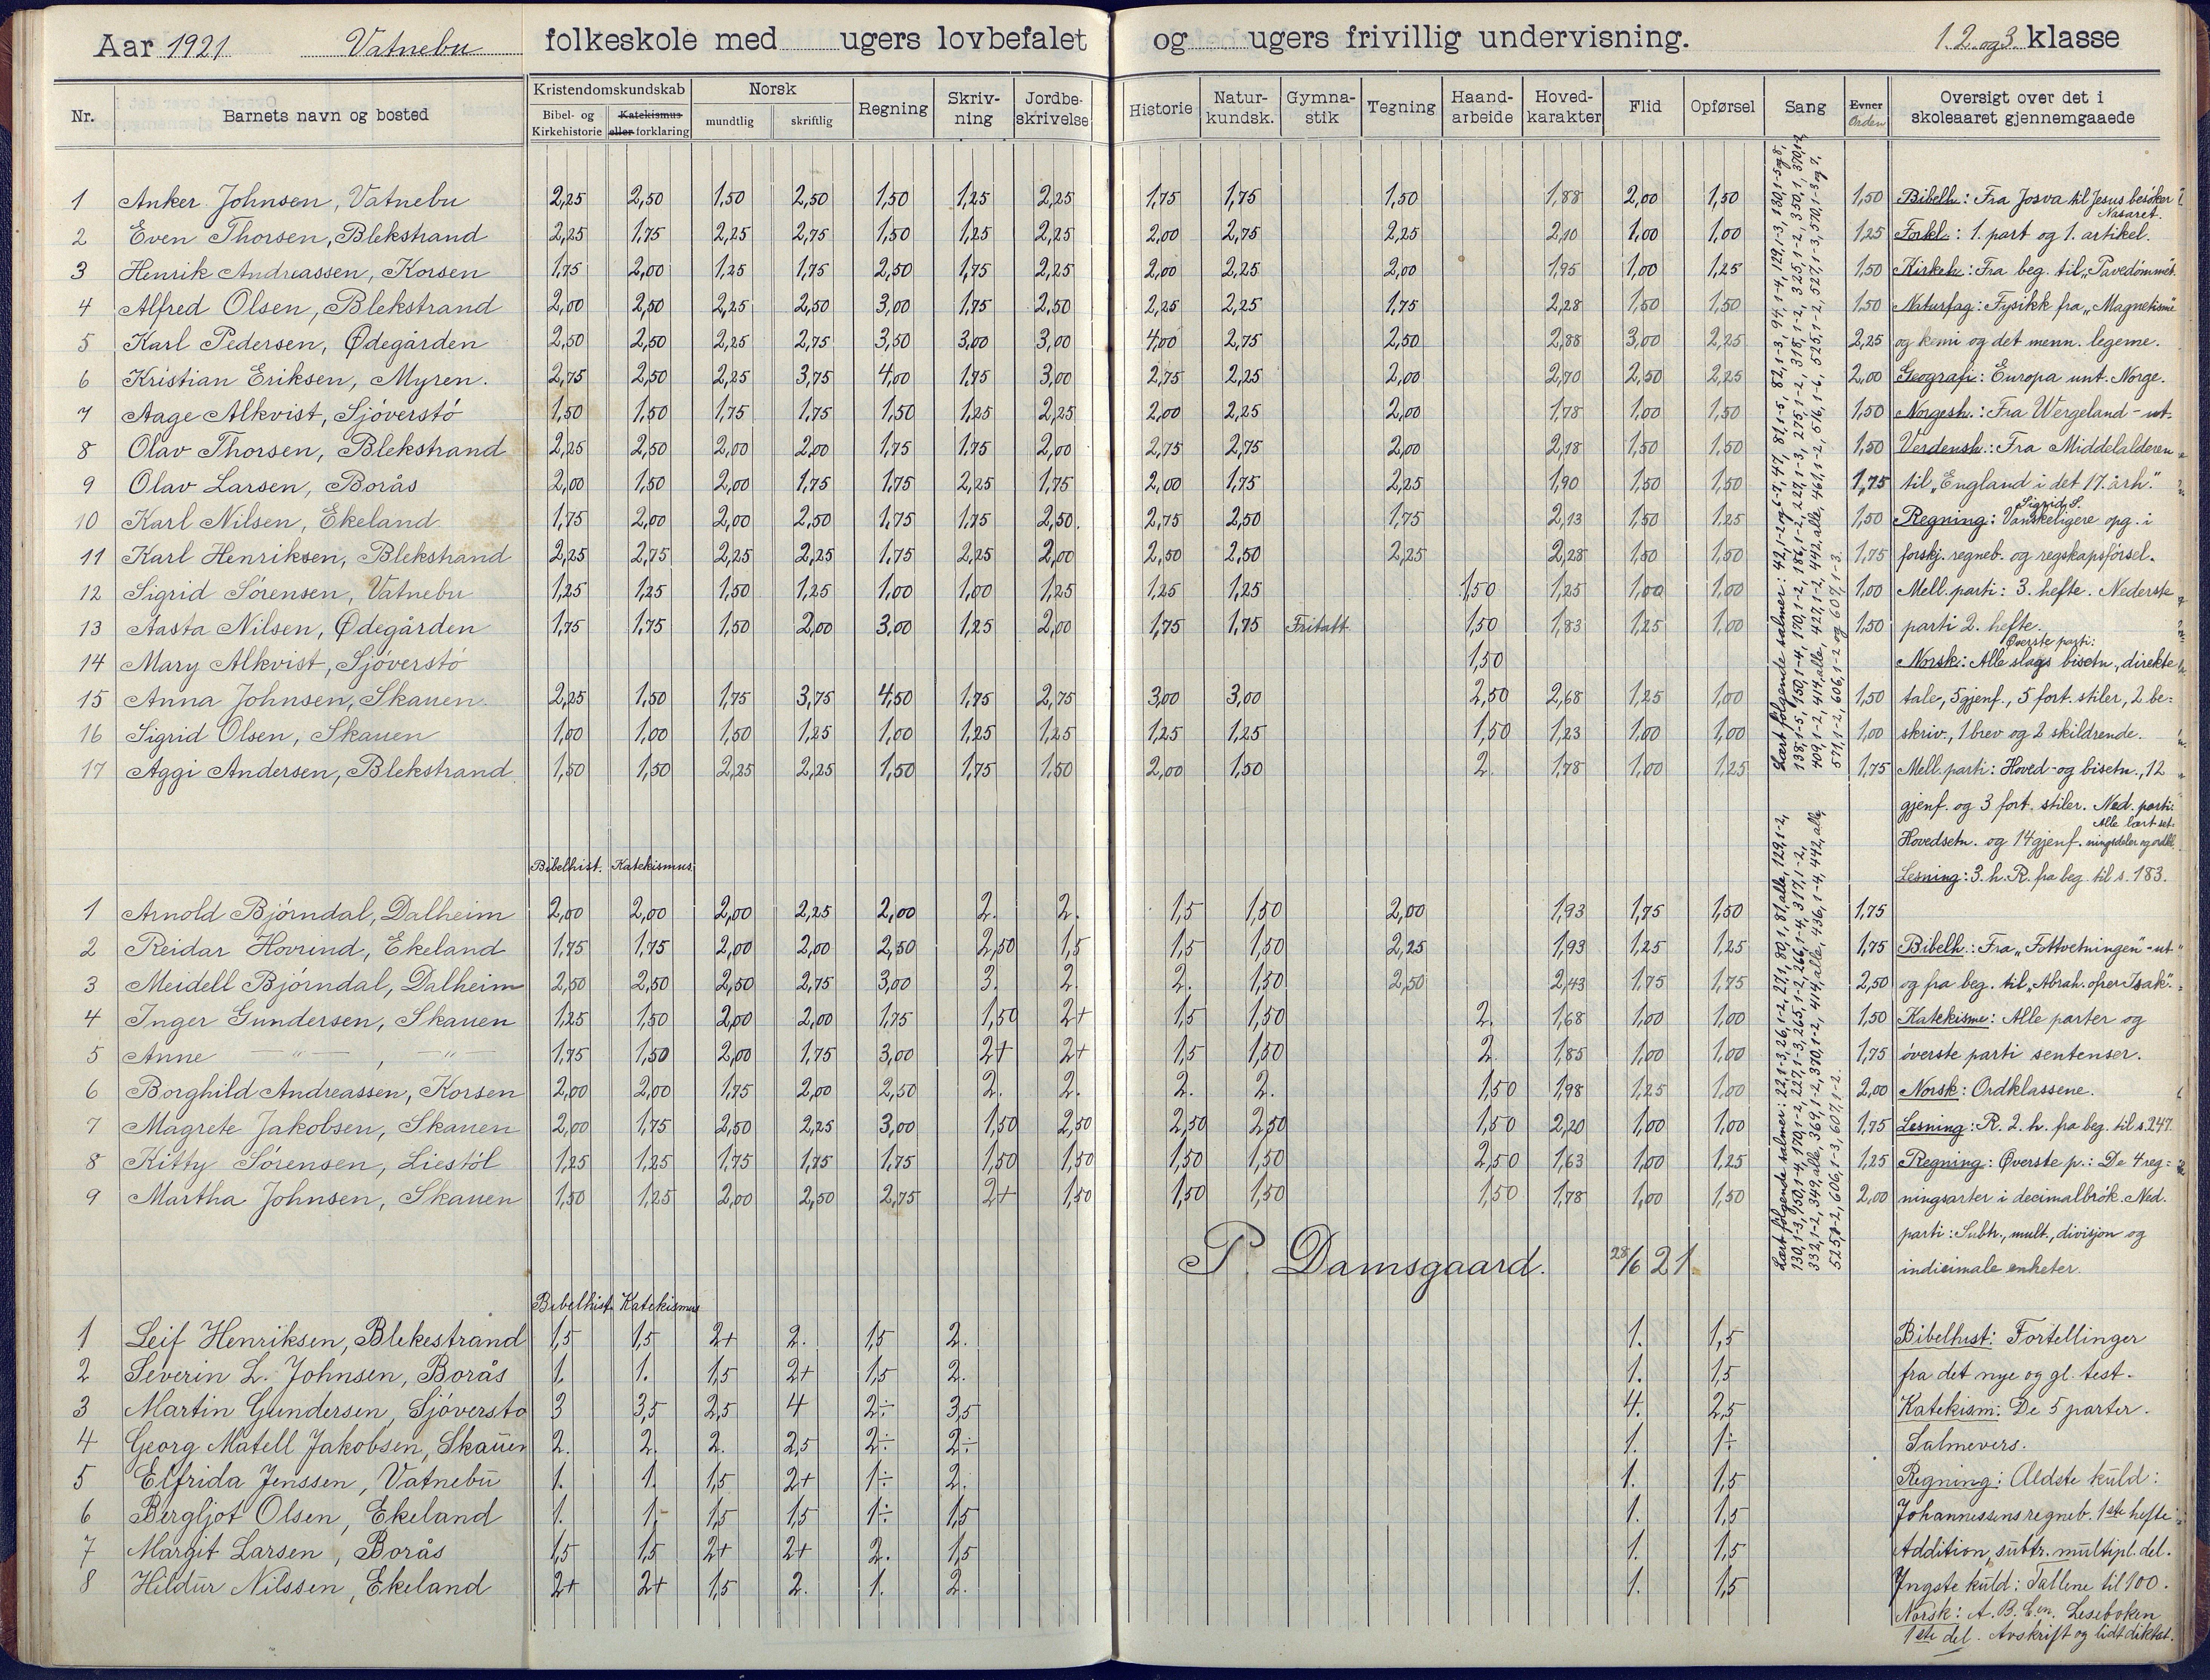 Aar 1921 Vatnebu folkeskole med ugers lovbefalet og ugers frivillig undervisning. 1. 2. og 3. klasse
Nr. Barnets navn og bosted Kristendomskundskab Bibel- og Kirkehistorie Katekismus eller forklaring Norsk mundtlig skriftlig Regning Skriv-ning Jordbe-skrivelse Historie Natur-kundsk. Gymna-stik Tegning Haand-arbeide Hoved-karakter Flid Opførsel Sang Evner Orden Oversigt over det i skoleaaret gjennemgaaede
1 Anker Johnsen, Vatnebu 2,25 2,50 1,50 2,50 1,50 1,25 2,25 1,75 1,75 1,50 1,88 2,00 1,50 1,50 Bibelh: Fra Josva til Jesus besöker Nasaret.
2 Even Thorsen, Blekstrand 2,25 1,75 2,25 2,75 1,50 1,25 2,25 2,00 2,75 2,25 2,10 1,00 1,00 1,25 Forkl: 1. part og 1. artikel.
3 Henrik Andreassen, Korsen 1,75 2,00 1,25 1,75 2,50 1,75 2,25 2,00 2,25 2,00 1,95 1,00 1,25 1,50 Kirkeh: Fra beg. til "Pavedömmet.
4 Alfred Olsen, Blekstrand 2,00 2,50 2,25 2,50 3,00 1,75 2,50 2,25 2,25 1,75 2,28 1,50 1,50 1,50 Naturfag: Fysikk fra "Magnetisme"
5 Karl Pedersen, Ødegården 2,50 2,50 2,25 2,75 3,50 3,00 3,00 4,00 2,75 2,50 2,88 3,00 2,25 2,25 og kemi og det menn. legeme.
6 Kristian Eriksen, Myren. 2,75 2,50 2,25 3,75 4,00 1,75 3,00 2,75 2,25 2,00 2,70 2,50 2,25 2,00 Geografi: Europa unt. Norge.
7 Aage Alkvist, Sjöverstö 1,50 1,50 1,75 1,75 1,50 1,25 2,25 2,00 2,25 2,00 1,78 1,00 1,50 1,50 Norgesh.: Fra Wergeland - ut-
8 Olav Thorsen, Blekstrand 2,25 2,50 2,00 2,00 1,75 1,75 2,00 2,75 2,75 2,00 2,18 1,50 1,50 1,50 Verdensh.: Fra Middelalderen
9 Olav Larsen, Borås 2,00 1,50 2,00 1,75 1,75 2,25 1,75 2,00 1,75 2,25 1,90 1,50 1,50 1,75 til "England i det 17. årh."
10 Karl Nilsen, Ekeland 1,75 2,00 2,00 2,50 1,75 1,75 2,50. 2,75 2,50 1,75 2,13 1,50 1,25 1,50 Regning: Sigrid S. Vanskeligere opg. i
11 Karl Henriksen, Blekstrand 2,25 2,75 2,25 2,25 1,75 2,25 2,00 2,50 2,50 2,25 2,28 1,50 1,50 1,75 forskj. regneb. og regskapsförsel.
12 Sigrid Sörensen, Vatnebu 1,25 1,25 1,50 1,25 1,00 1,00 1,25 1,25 1,25 1,50 1,25 1,00 1,00 1,00 Mell. parti: 3. hefte. Nederste
13 Aasta Nilsen, Ødegården 1,75 1,75 1,50 2,00 3,00 1,25 2,00 1,75 1,75 Fritatt 1,50 1,83 1,25 1,00 1,50 parti 2. hefte.
14 Mary Alkvist, Sjöverstö 1,50 Øverste parti: Norsk: Alle slags bisetn., direkte
15 Anna Johnsen, Skauen. 2,25 1,50 1,75 3,75 4,50 1,75 2,75 3,00 3,00 2,50 2,68 1,25 1,00 1,50 tale, 5 gjenf., 5 fort. stiler, 2 be-
16 Sigrid Olsen, Skauen 1,00 1,00 1,50 1,25 1,00 1,25 1,25 1,25 1,25 1,50 1,23 1,00 1,00 1,00 skriv., 1 brev og 2 skildrende.
17 Aggi Andersen, Blekstrand. 1,50 1,50 2,25 2,25 1,50 1,75 1,50 2,00 1,50 2. 1,78 1,00 1,25 1,75 Mell. parti: Hoved- og bisetn., 12
gjenf. og 3 fort. stiler. Ned. parti:
Alle lært set-
Hovedsetn. og 14 gjenf. ningsdeler og ordkl.
Bibelhist. Katekismus. Lesning: 3. h. R. fra beg. til s. 183.
1 Arnold Bjørndal, Dalheim 2,00 2,00 2,00 2,25 2,00 2. 2. 1,5 1,50 2,00 1,93 1,75 1,50 1,75
2 Reidar Hovrind, Ekeland 1,75 1,75 2,00 2,00 2,50 2,50 1,5 1,5 1,50 2,25 1,93 1,25 1,25 1,75 Bibelh.: Fra "Fottvetningen" - ut
3 Meidell Bjørndal, Dalheim 2,50 2,50 2,50 2,75 3,00 3. 2. 2. 1,50 2,50 2,43 1,75 1,75 2,50 og fra beg. til "Abrah. ofrer Isak".
4 Inger Gundersen, Skauen 1,25 1,50 2,00 2,00 1,75 1,50 2+ 1,5 1,50 2. 1,68 1,00 1,00 1,50 Katekisme: Alle parter og
5 Anne — " — , — " — 1,75 1,50 2,00 1,75 3,00 2+ 2+ 1,5 1,50 2. 1,85 1,00 1,00 1,75 överste parti sentenser.
6 Borghild Andreassen, Korsen 2,00 2,00 1,75 2,00 2,50 2. 2. 2. 2. 1,50 1,98 1,25 1,00 2,00 Norsk: Ordklassene.
7 Magrete Jakobsen, Skauen 2,00 1,75 2,50 2,25 3,00 1,50 2,50 2,50 2,50 1,50 2,20 1,00 1,00 1,75 Lesning: R. 2. h. fra beg. til s. 247.
8 Kitty Sörensen, Liestöl 1,25 1,25 1,75 1,75 1,75 1,50 1,50 1,50 1,50 2,50 1,63 1,00 1,25 1,25 Regning: Øverste p.: De 4 reg-
9 Martha Johnsen, Skauen 1,50 1,25 2,00 2,50 2,75 2+ 1,50 1,50 1,50 1,50 1,78 1,00 1,50 2,00 ningsarter i decimalbrök. Ned.
parti: Subtr., mult., divisjon og
P. Damsgaard. 28/6 21. indicimale enheter.
Bibelhist. Katekismus
1 Leif Henriksen, Blekestrand 1,5 1,5 2+ 2. 1,5 2. 1. 1,5 Bibelhist: Fortellinger
2 Severin L. Johnsen, Borås 1. 1. 1,5 2+ 1,5 2. 1. 1,5 fra det nye og gl. test.
3 Martin Gundersen, Sjöverstö 3 3,5 2,5 4 2÷ 3,5 4. 2,5 Katekism: De 5 parter.
4 Georg Matell Jakobsen, Skauen 2. 2. 2. 2,5 2÷ 2÷ 1. 1÷ Salmevers.
5 Elfrida Jenssen, Vatnebu 1. 1. 1,5 2+ 1÷ 2. 1. 1,5 Regning: Ældste kuld:
6 Bergljot Olsen, Ekeland 1. 1. 1,5 1,5 1÷ 1,5 1. 1,5 Johannessens regneb. 1ste hefte
7 Margit Larsen, Borås 1,5 1,5 2+ 2+ 2. 1,5 1. 1,5 Addition, subtr. multipl. del.
8 Hildur Nilssen, Ekeland 2+ 2+ 1,5 2. 1. 2. 1. 1,5 Yngste kuld: Tallene til 100.
Norsk: A. B. C.en. Leseboken
1ste del. Avskrift og lidt diktat.
Lært følgende salmer:
Lært følgende salmer: